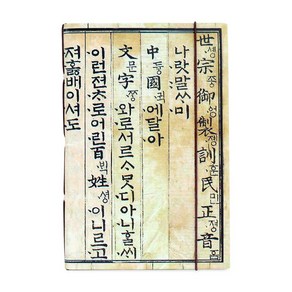 世솅宗종御엉製졩訓훈民민正졍音
나랏말ᄊᆞ미
中듕國귁에달아
文문字ᄍᆞᆼ와로서르ᄉᆞᄆᆞᆺ디아니ᄒᆞᆯᄊᆡ
이런젼ᄎᆞ로어린百ᄇᆡᆨ姓셩이니르고
져호ᇙ배이셔도